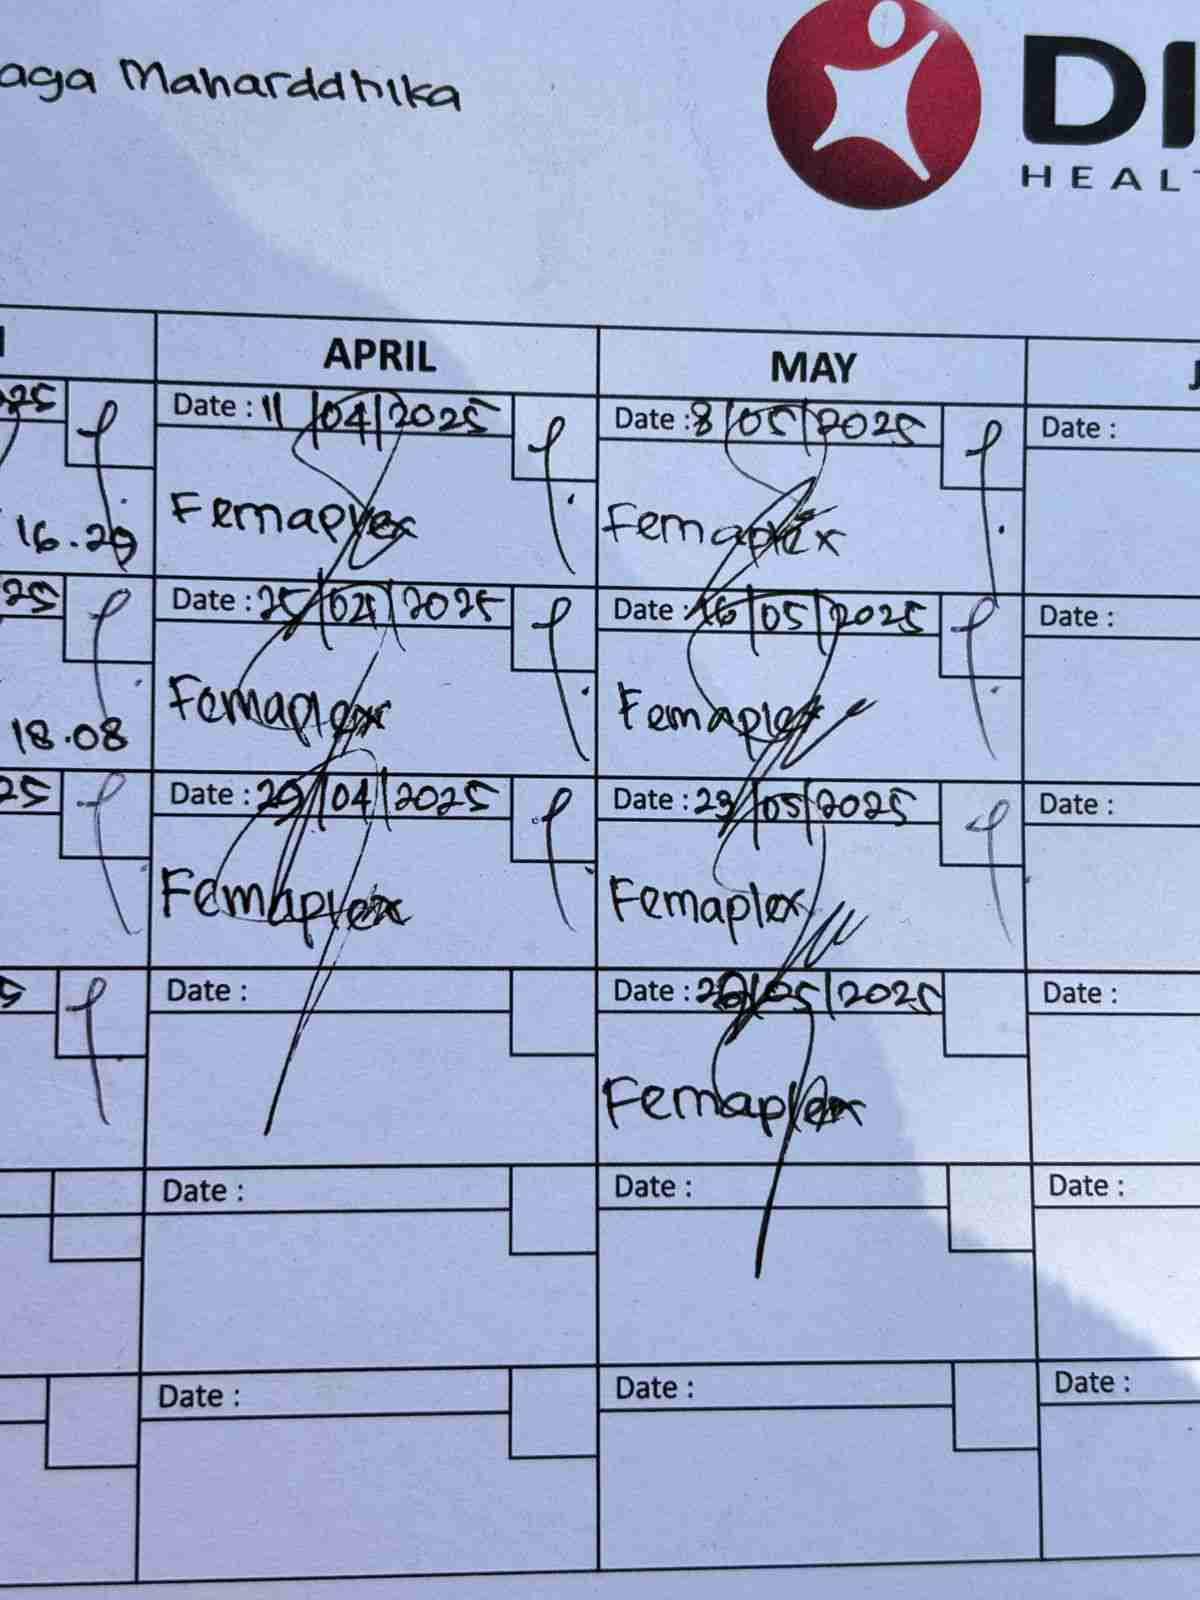 aga Maharddhika
DI
HEALT
APRIL MAY
25 Date : 11/04/2025 Date : 8/05/2025 Date :
16.20 Femaplex Femaplex
25 Date : 25/04/2025 Date : 16/05/2025 Date :
18.08 Femaplex Femaplex
25 Date : 29/04/2025 Date : 23/05/2025 Date :
Femaplex Femaplex
5 Date : Date : /05/2025 Date :
Femaplex
Date : Date : Date :
Date : Date : Date :